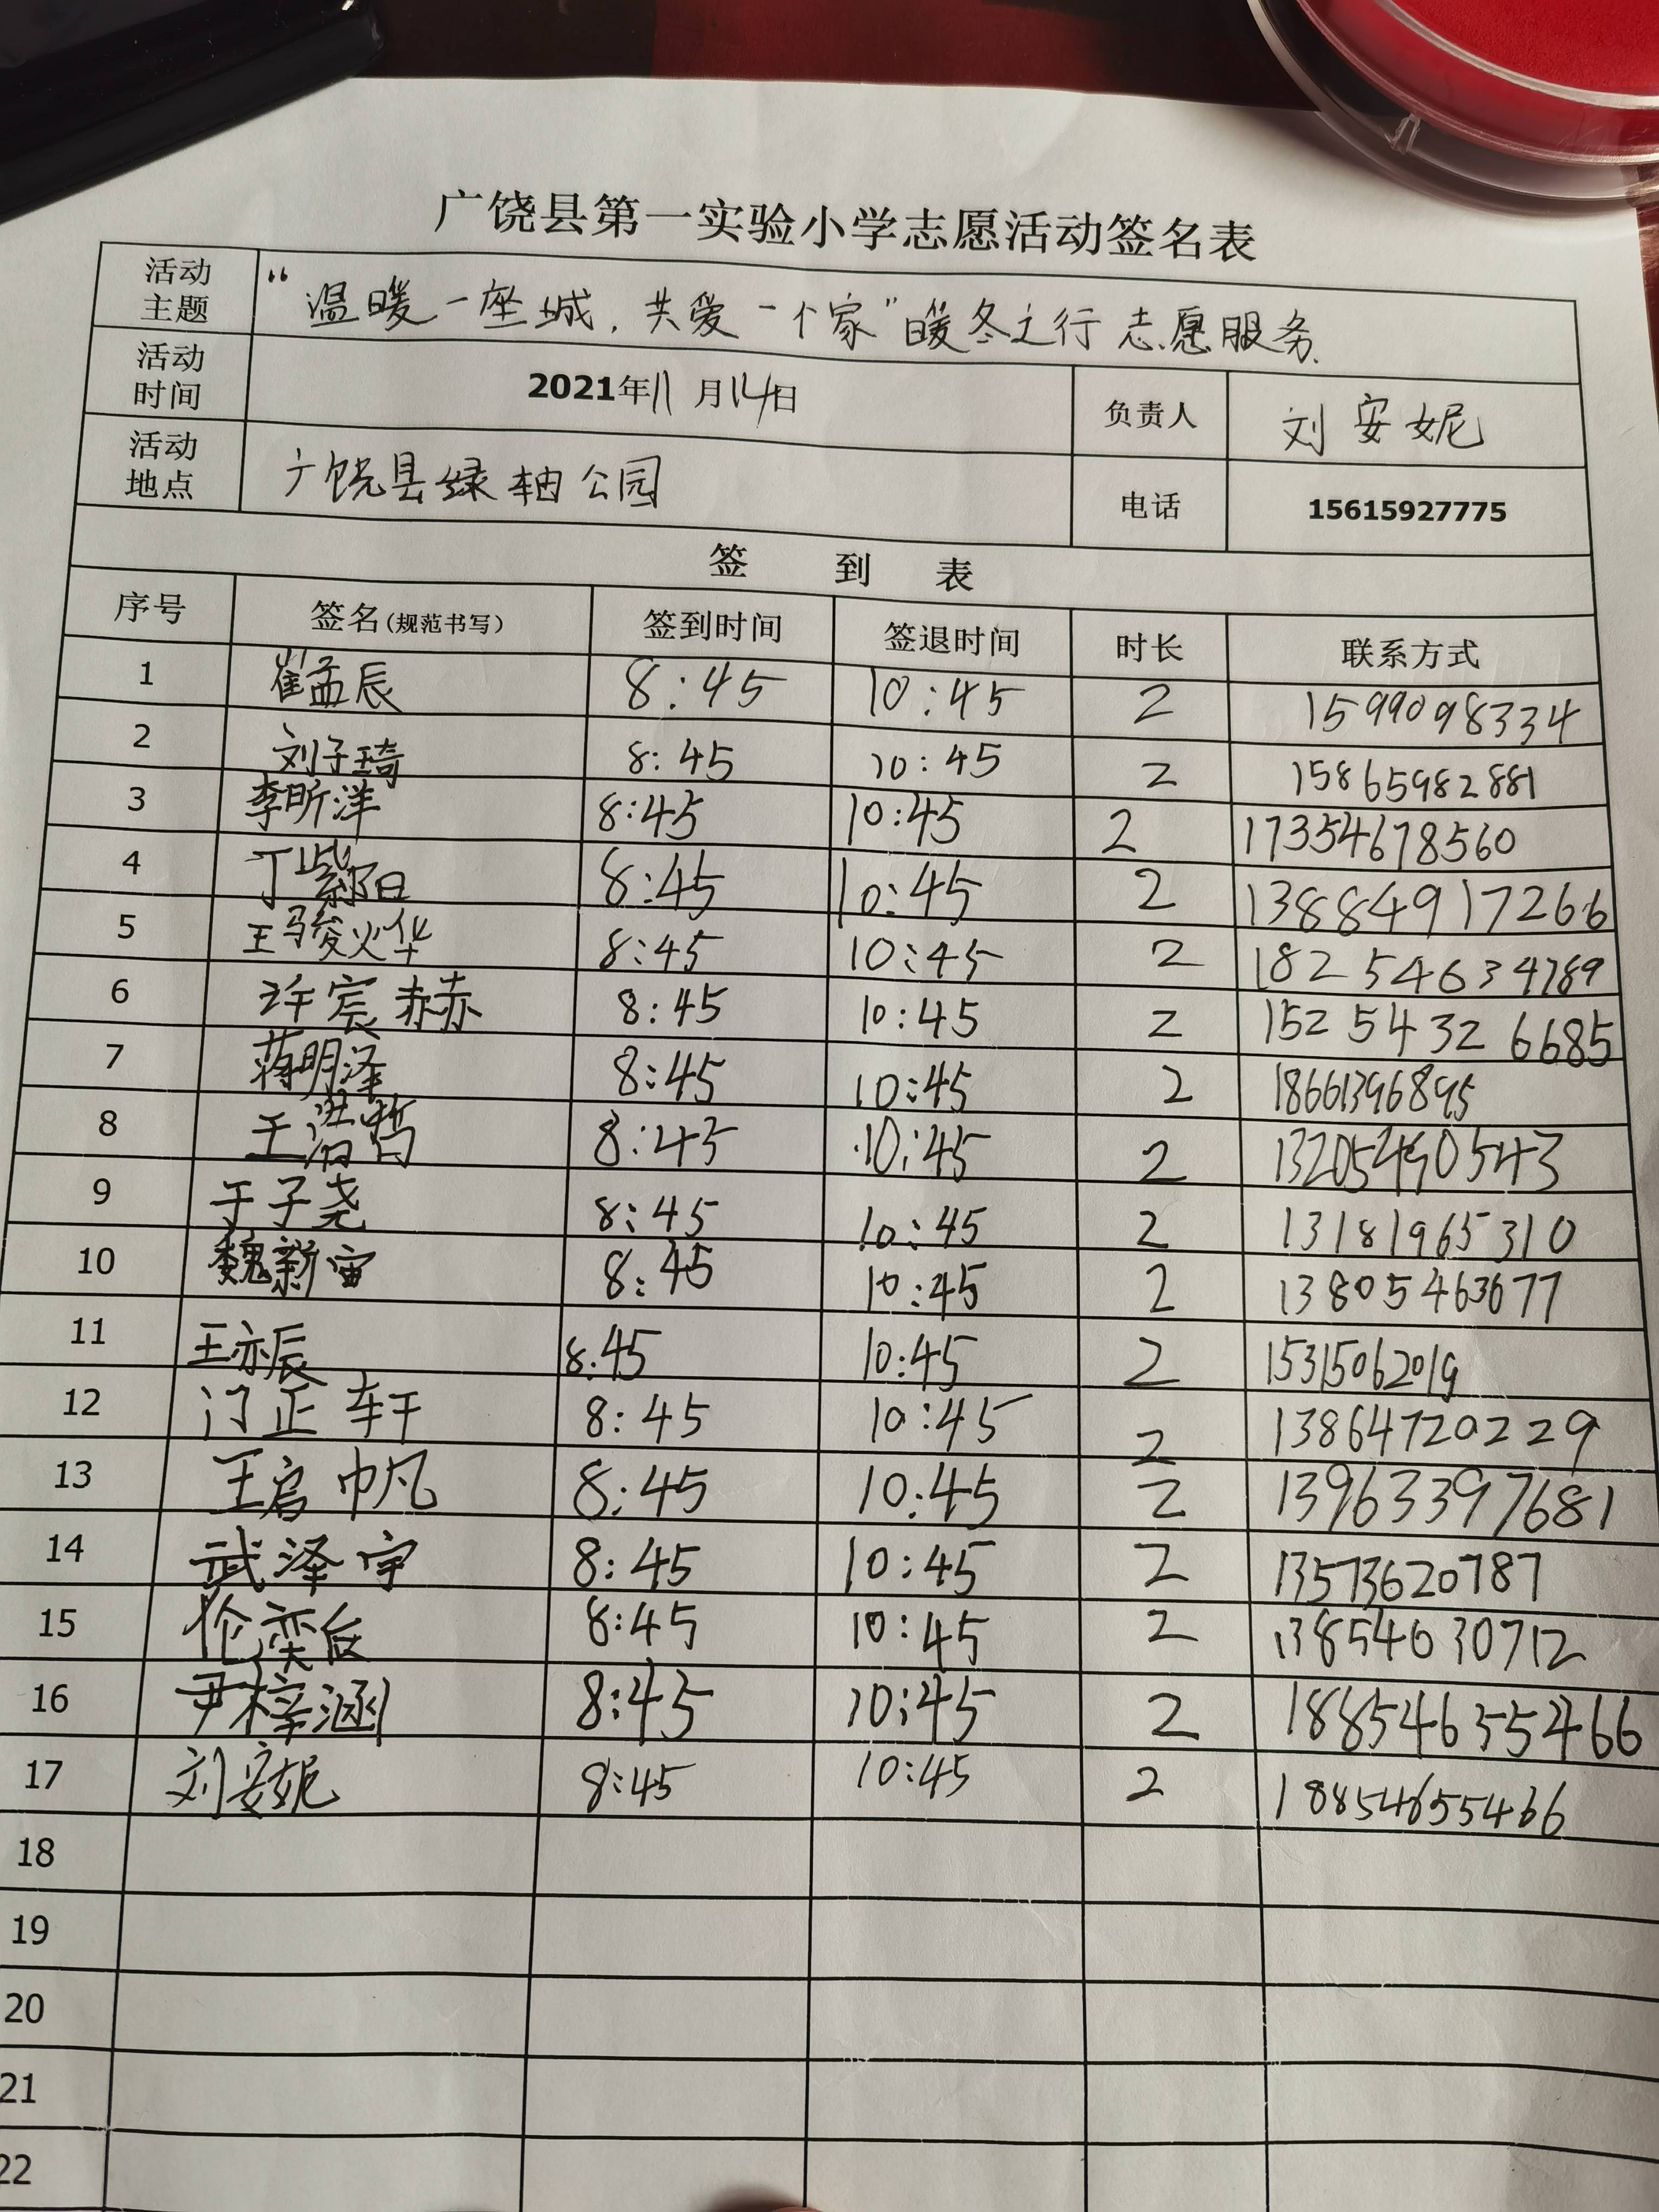 广饶县第一实验小学志愿活动签名表
活动主题 “温暖一座城，共爱一个家”暖冬之行志愿服务
活动时间 2021年11月14日 负责人 刘安妮
活动地点 广饶县绿轴公园 电话 15615927775
签 到 表
序号 签名(规范书写) 签到时间 签退时间 时长 联系方式
1 崔孟辰 8:45 10:45 2 15990098334
2 刘子琦 8:45 10:45 2 15865982881
3 李昕洋 8:45 10:45 2 17354678560
4 丁紫阳 8:45 10:45 2 13884917266
5 王骏烨 8:45 10:45 2 18254634789
6 许宸赫 8:45 10:45 2 15254326685
7 蒋明泽 8:45 10:45 2 18661396895
8 王浩哲 8:45 10:45 2 13205490543
9 于子尧 8:45 10:45 2 13181965310
10 魏新宙 8:45 10:45 2 13805463677
11 王亦辰 8:45 10:45 2 15315062019
12 门正轩 8:45 10:45 2 13864720229
13 王启帆 8:45 10:45 2 13963397681
14 武泽宇 8:45 10:45 2 13573620787
15 8:45 10:45 2 13854630712
16 尹梓涵 8:45 10:45 2
17 刘安妮 8:45 10:45 2 18854655466
18
19
20
21
22